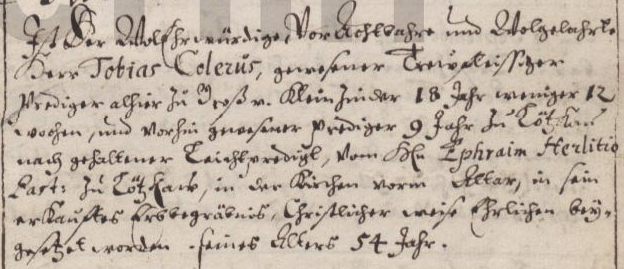 Ist Der WolEhrwürdige, Vor Achtbahre und Wolgelahrte
Herr Tobias Colerus, gewesener Treufleissiger
Prediger alhier zu Groß u. Klein 18 Jahr weniger 12
wochen, und vorhin gewesener Prediger 9 Jahr zu
nach gehaltener Leichpredigt, vom Hn Ephraim Herlitio
Past: zu in der Kirchen vorm Altar, in sein
erkauftes Erbbegräbnis, Christlicher weise Ehrlichen bey-
gesetzet worden. seines Alters 54 Jahr.